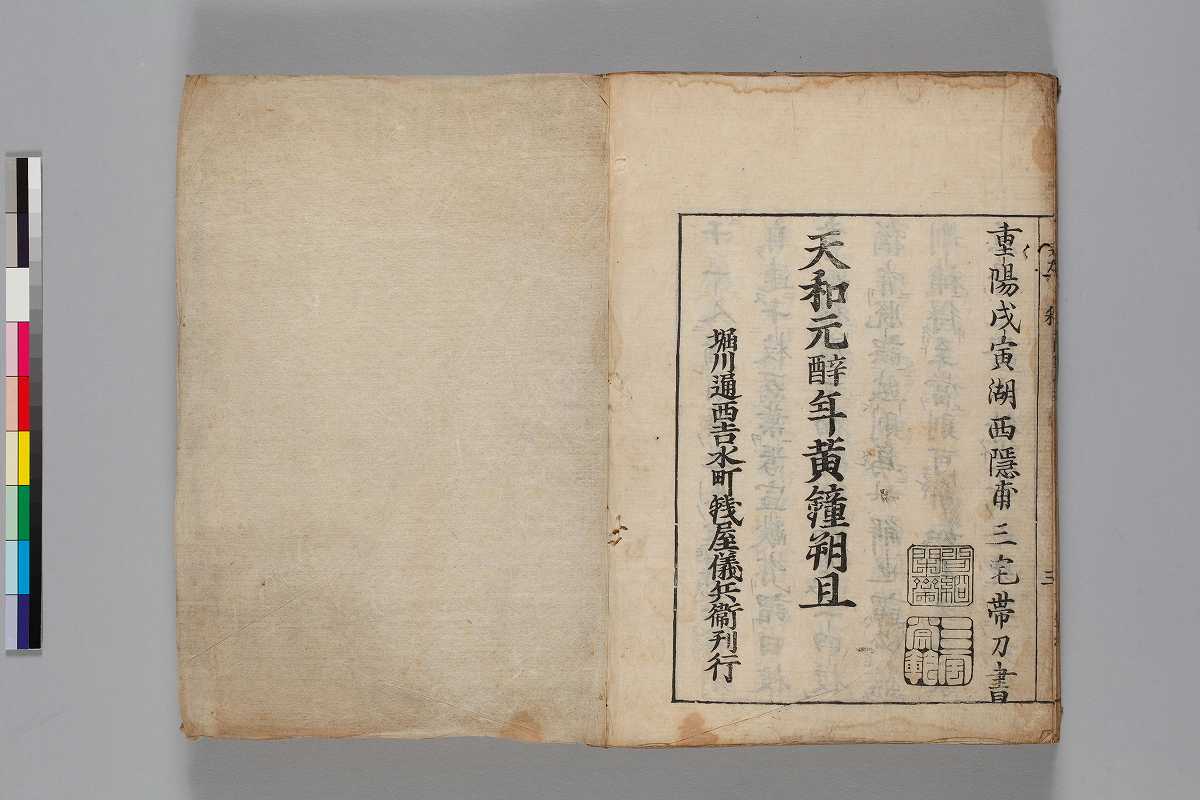 重陽戌寅湖西隱甫三宅帯刀書
天和元酔年黄鐘朔旦
堀川通西吉水町銭屋儀兵衞刋行
三